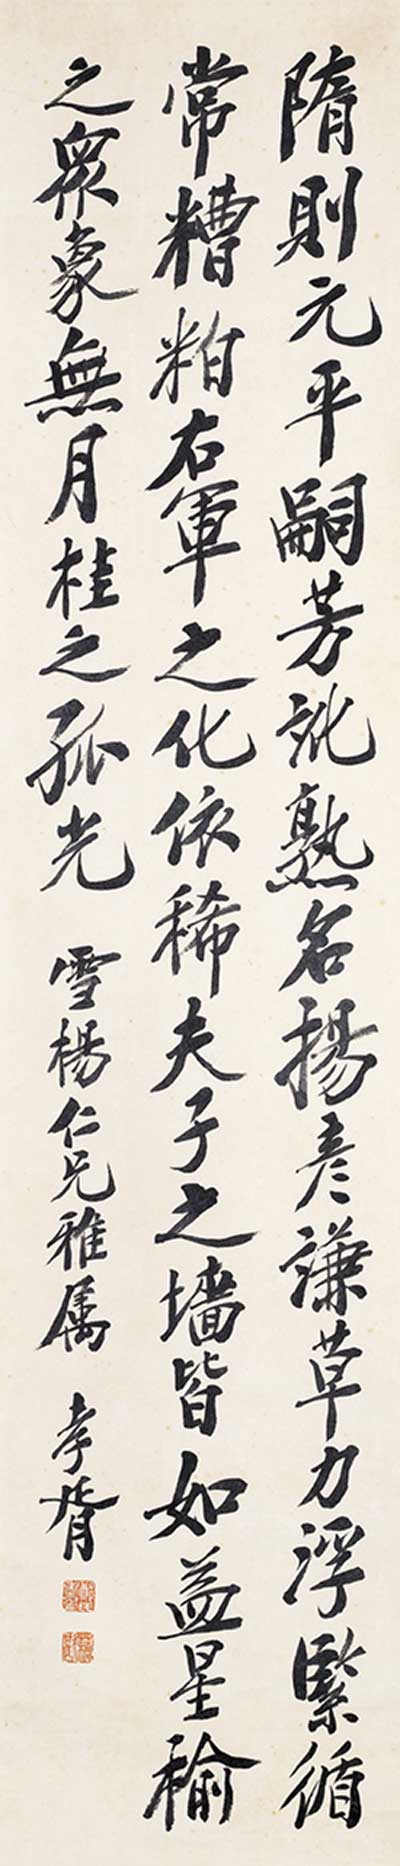 隋則元平嗣芳訛熟名揚彥謙草力浮緊循
常糟粕右軍之化依稀夫子之墻皆如益星榆
之眾象無月桂之孤光 雪楊仁兄雅属 孝胥